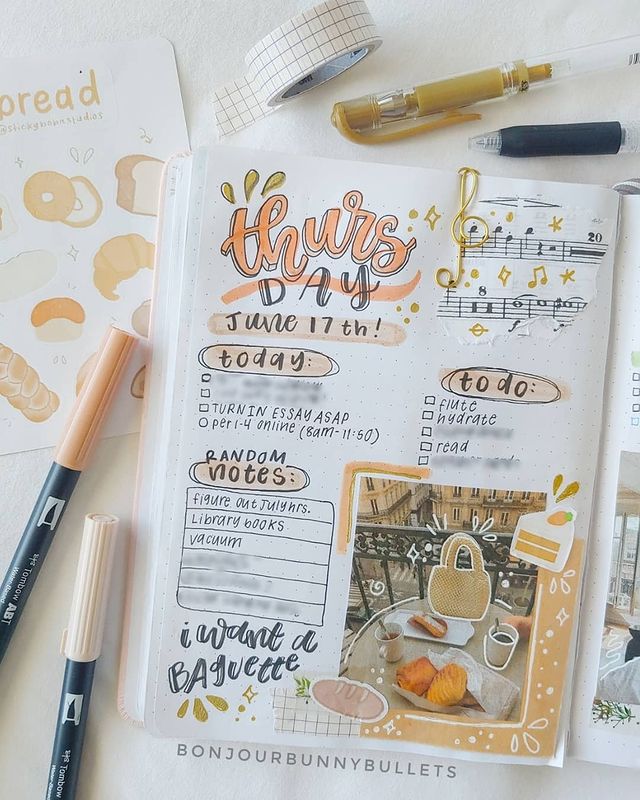 bread
@stickybonnstudios
thurs
DAY
June 17th!
today:
TURN IN ESSAY ASAP
per 1-4 online (8am-11:50)
to do:
flute
hydrate
read
RANDOM
notes:
figure out July hrs.
Library books
vacuum
i want a
BAGUETTE
20
8
Tombow ABT
Tombow
BONJOURBUNNYBULLETS